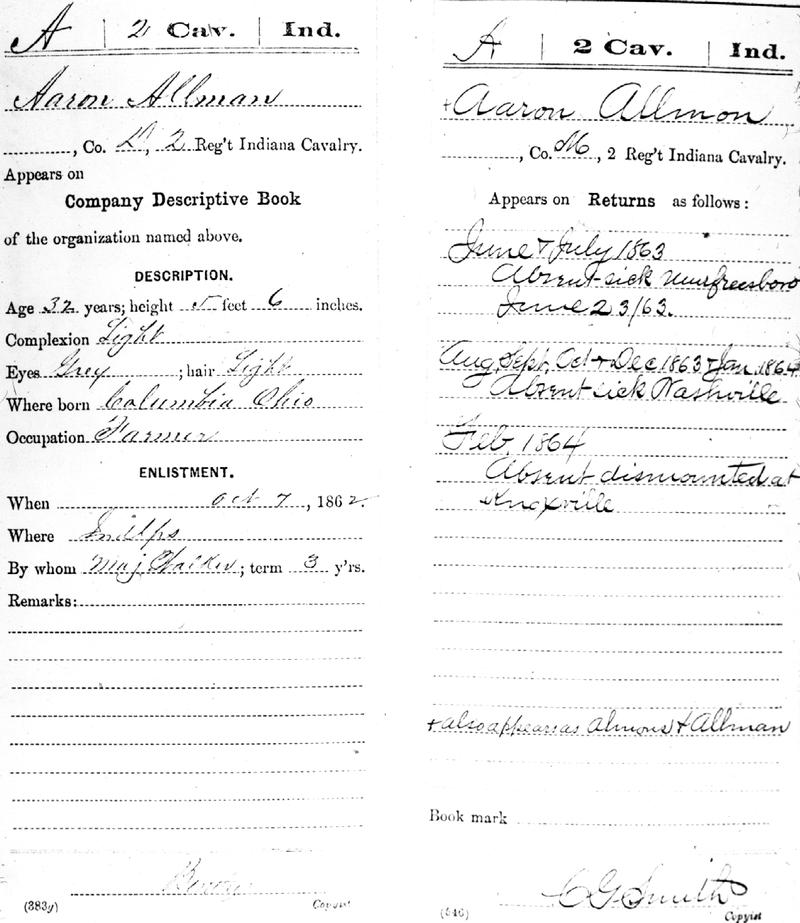 A | 2 Cav. | Ind.
Aaron Allman
, Co. , 2 Reg't Indiana Cavalry.
Appears on
Company Descriptive Book
of the organization named above.
DESCRIPTION.
Age 32 years; height 5 feet 6 inches.
Complexion Light
Eyes Grey ; hair Light
Where born Columbia Ohio
Occupation Farmer
ENLISTMENT.
When Oct 7, 1862.
Where Indlps
By whom Maj Walker; term 3 y'rs.
Remarks:
(383g) Copyist
A | 2 Cav. | Ind.
+ Aaron Allmon
, Co. M, 2 Reg't Indiana Cavalry.
Appears on Returns as follows:
June & July 1863
Absent sick Murfreesboro
June 23/63.
Aug, Sept, Oct & Dec 1863 & Jan. 1864
Absent sick Nashville
Feb. 1864
Absent dismounted at
Knoxville
+ also appears as Almons & Allman
Book mark
C G Smith
(546) Copyist